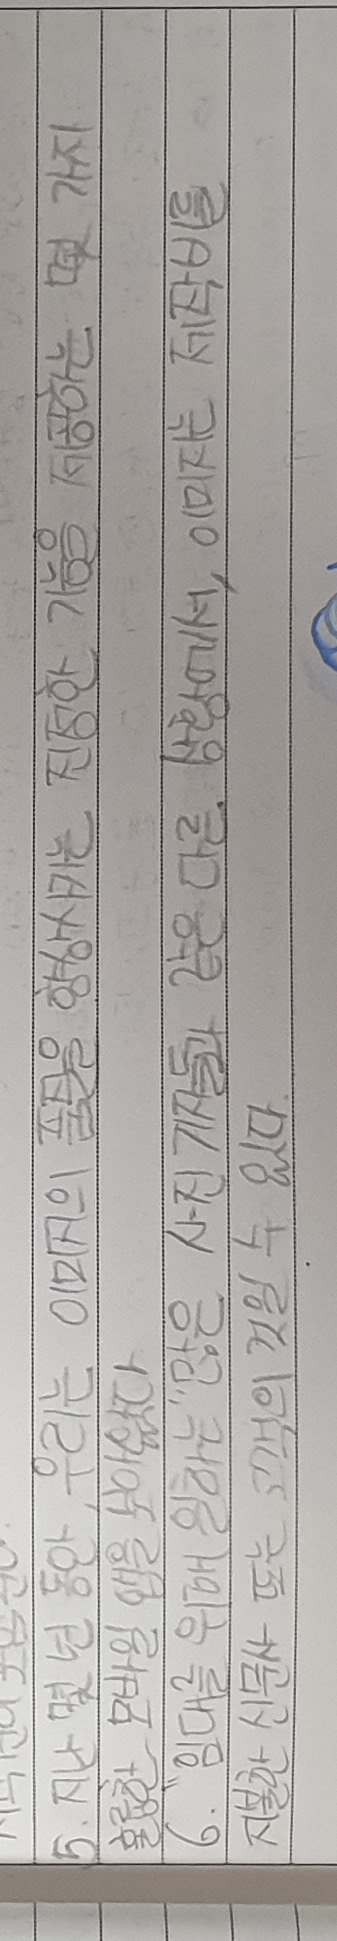 5. 지난 몇 년 동안, 우리는 이미지의 품질을 향상시키는 진정한 기능을 제공하는 몇 가지
훌륭한 모바일 앱을 보아왔다
6. "임대를 위해 일하는" 많은 사진 기자들과 같은 다른 상황에서, 이미지는 제작비를
지불한 신문사 또는 고객의 것일 수 있다.